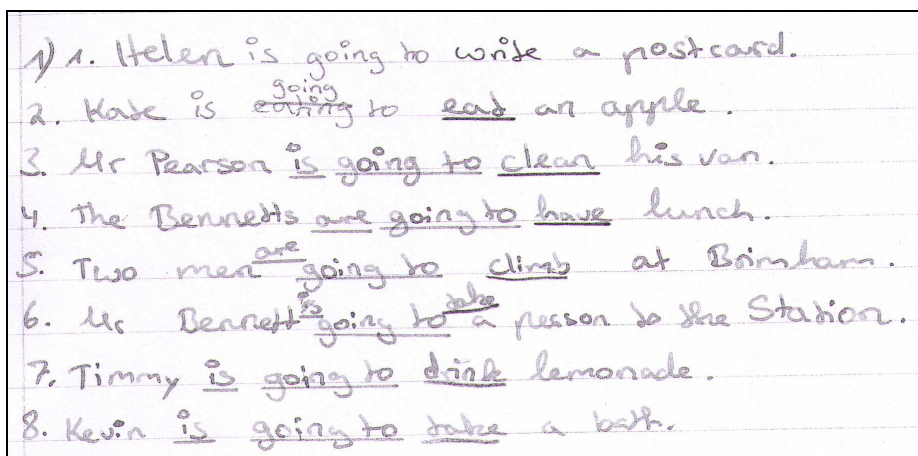 1) 1. Helen is going to write a postcard.
2. Kate is eating going to eat an apple.
3. Mr Pearson is going to clean his van.
4. The Bennetts are going to have lunch.
5. Two men are going to climb at Brimham.
6. Mr Bennett is going to take a person to the Station.
7. Timmy is going to drink lemonade.
8. Kevin is going to take a bath.